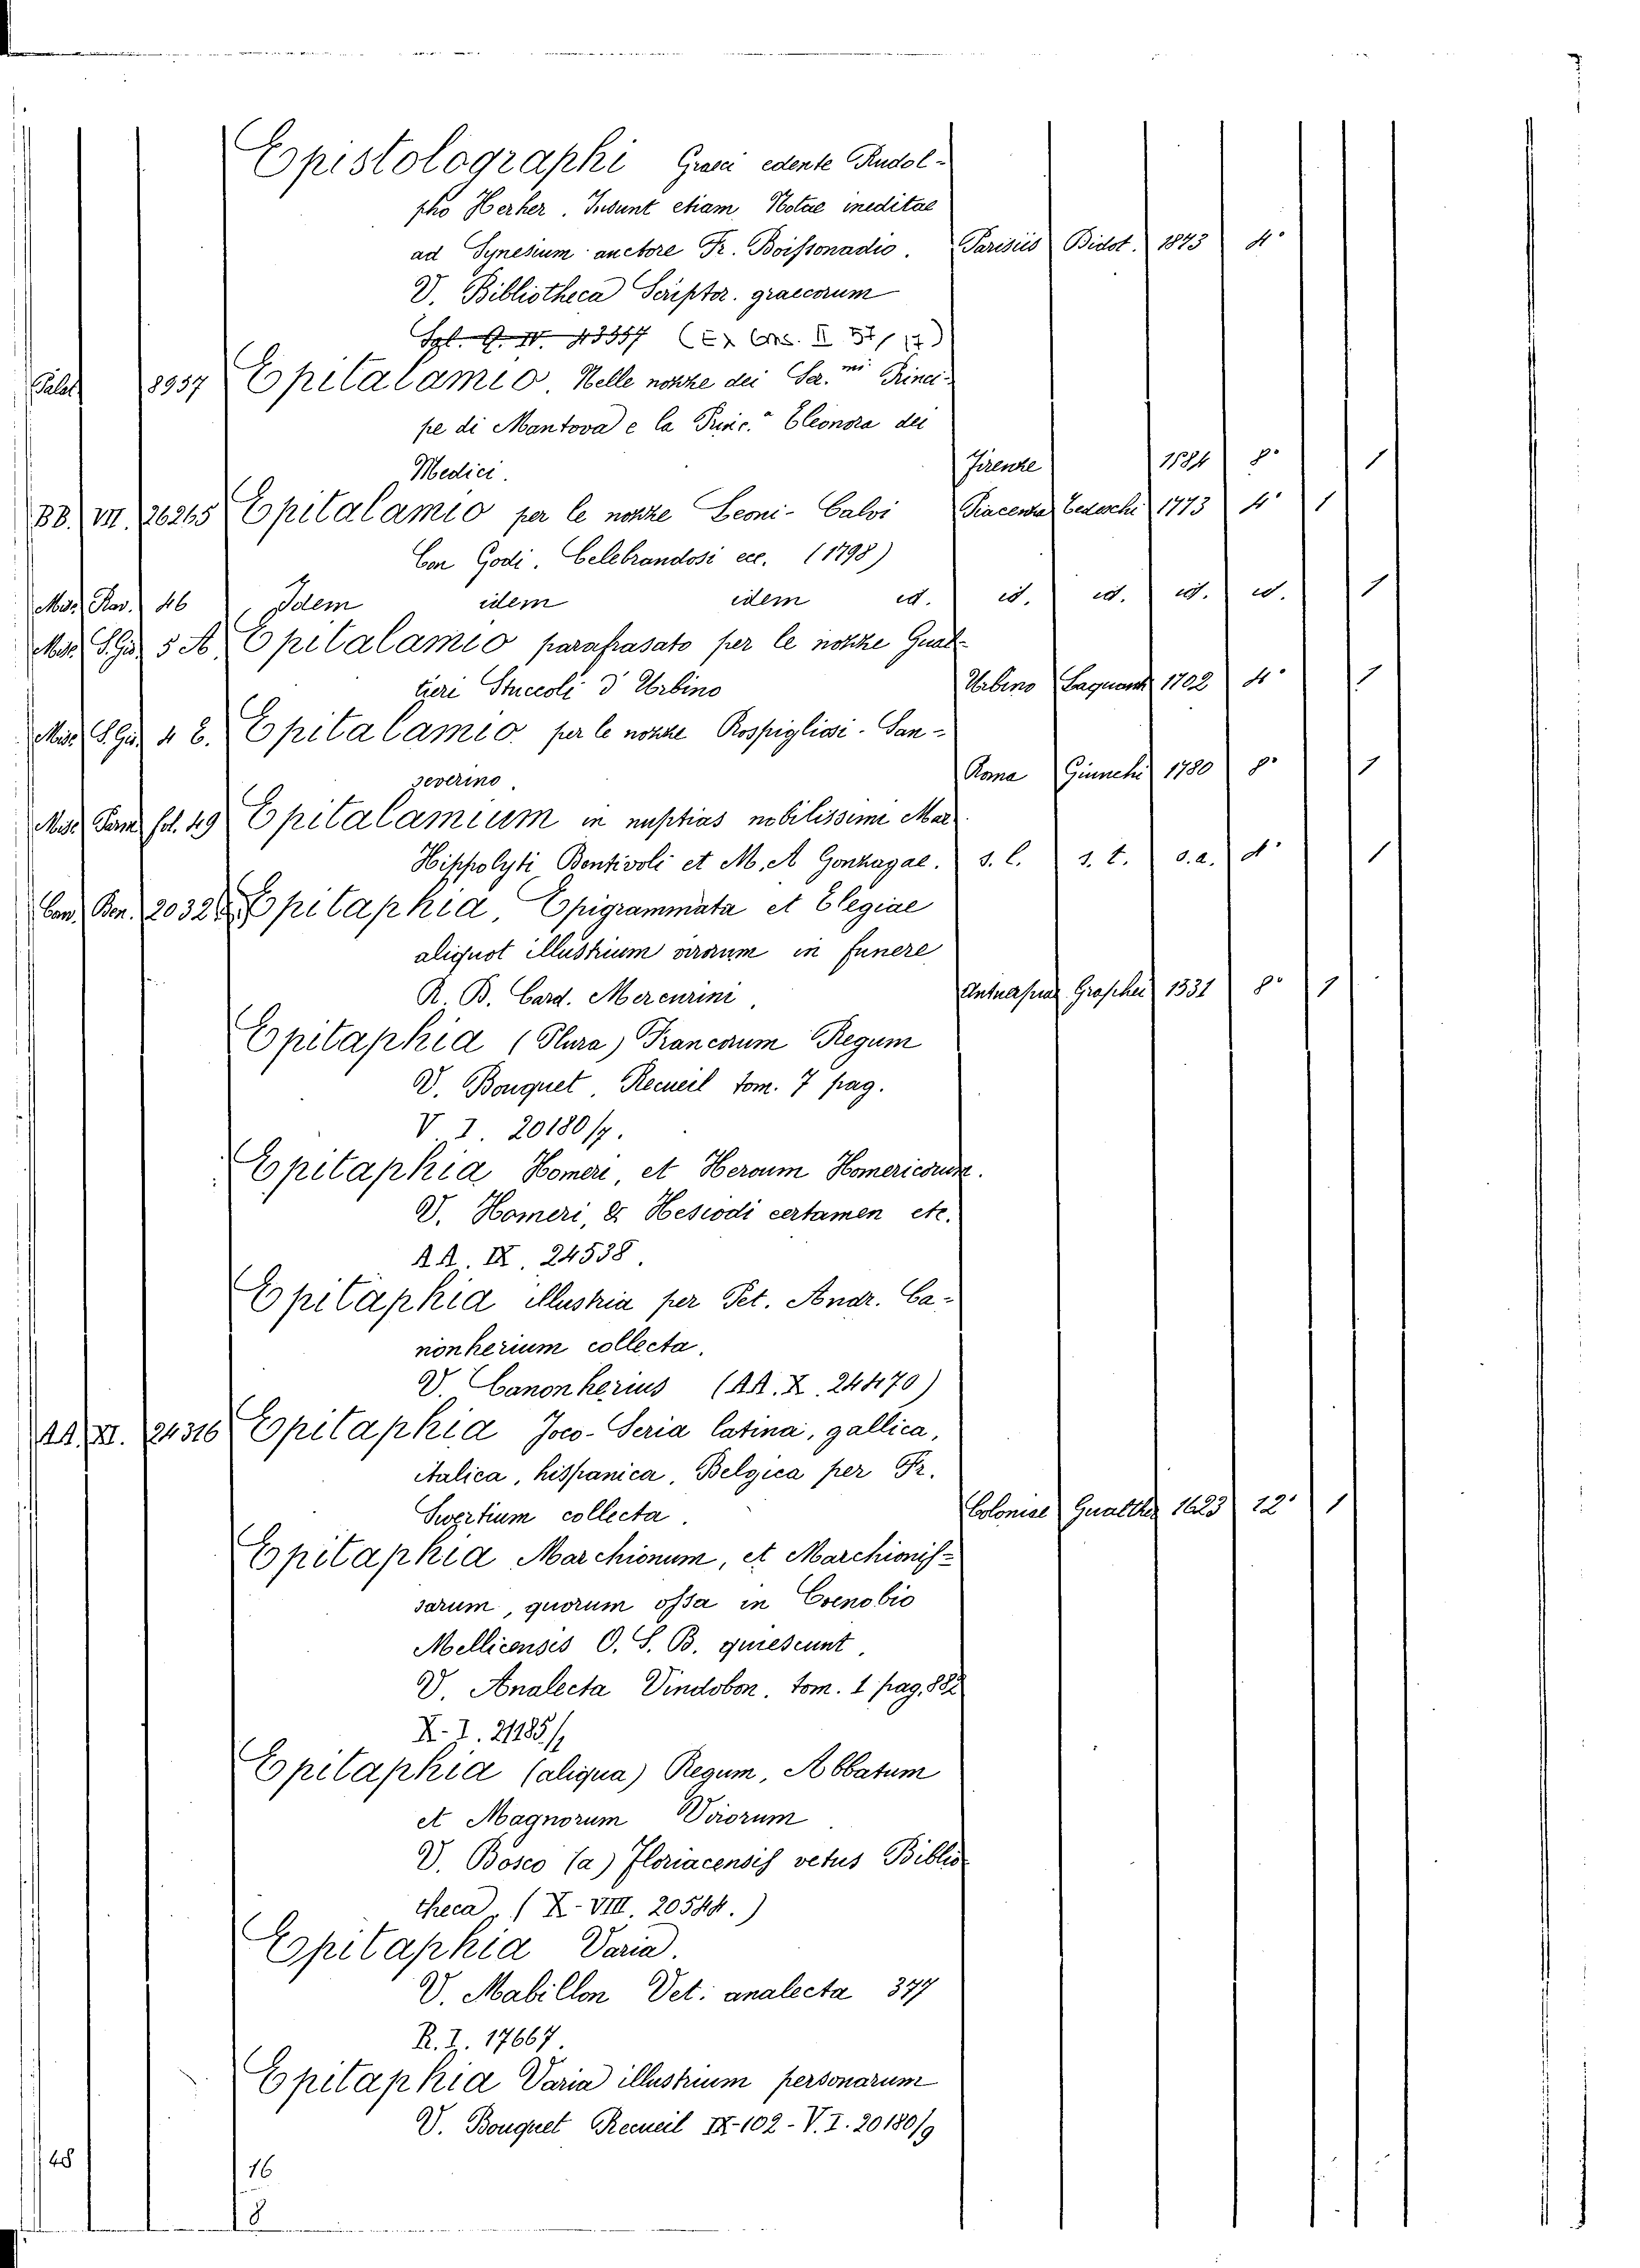 Epistolographi Graeci edente Rudol-
pho Hercher. Insunt etiam Notae ineditae
ad Synesium auctore Fr. Boissonadio. Parisiis Didot. 1873 4°
V. Bibliotheca Scriptor. graecorum
Palat. 8957 Epitalamio Nelle nozze dei Ser.mi Princi-
pe di Mantova e la Princ.a Eleonora dei
Medici. Firenze 1584 8° 1
BB. VII. 26265 Epitalamio per le nozze Leoni-Calvi Piacenza Tedeschi 1773 4° 1
Con Godi. Celebrandosi ecc. (1798)
Misc. Rav. 46 Idem idem idem id. id. id. id. id. 1
Misc. S. Gir. 5 A Epitalamio parafrasato per le nozze Gual-
tieri Stuccoli d'Urbino Urbino 1702 4° 1
Misc. S. Gir. 4 E. Epitalamio per le nozze Rospigliosi-San-
severino. Roma Giunchi 1780 8° 1
Misc. Parm. fol. 49 Epitalamium in nuptias nobilissimi Mar
Hippolyti Bentivoli et M. A Gonzagae. s. l. s. t. s. a. 4° 1
Can. Ben. 2032 Epitaphia, Epigrammata et Elegiae
aliquot illustrium virorum in funere
R. B. Card. Mercurini. Antuerpiae Graphei 1531 8° 1
Epitaphia (Plura) Francorum Regum
V. Bouquet, Recueil tom. 7 pag.
V. I. 20180/7.
Epitaphia Homeri, et Heroum Homericorum.
V. Homeri, & Hesiodi certamen etc.
AA. IX. 24538.
Epitaphia illustria per Pet. Andr. Ca-
nonherium collecta.
V. Canonherius (AA. X. 24470)
AA. XI. 24316 Epitaphia Joco-Seria latina, gallica,
italica, hispanica, Belgica per Fr.
Swertium collecta. Coloniae Gualther 1623 12° 1
Epitaphia Marchionum, et Marchionis-
sarum, quorum ossa in Coenobio
Mellicensis O. S. B. quiescunt.
V. Analecta Vindobon. tom. 1 pag. 882
X-I. 21185/1
Epitaphia (aliqua) Regum, Abbatum
et Magnorum Virorum
V. Bosco (a) Floriacensis vetus Biblio-
theca. (X-VIII. 20544.)
Epitaphia Varia.
V. Mabillon Vet. analecta 377
R. I. 17667.
Epitaphia Varia illustrium personarum
V. Bouquet Recueil IX-102-V. I. 20180/9
48 16
8